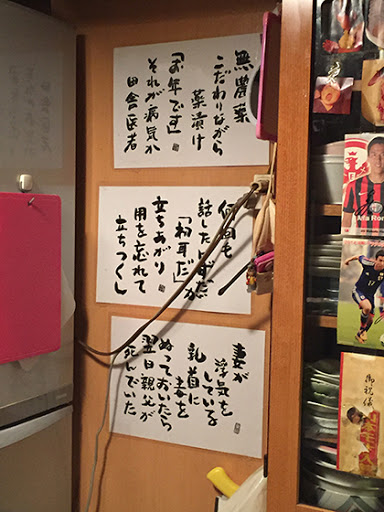 無農薬
こだわりながら
薬漬け
「お年です」
それが病気か
田舎医者
何回も
話したはずだが
「初耳だ」
立ちあがり
用を忘れて
立ちつくし
妻が
浮気を
している
乳首に
毒を
ぬっておいたら
翌日親父が
死んでいた
御祝儀